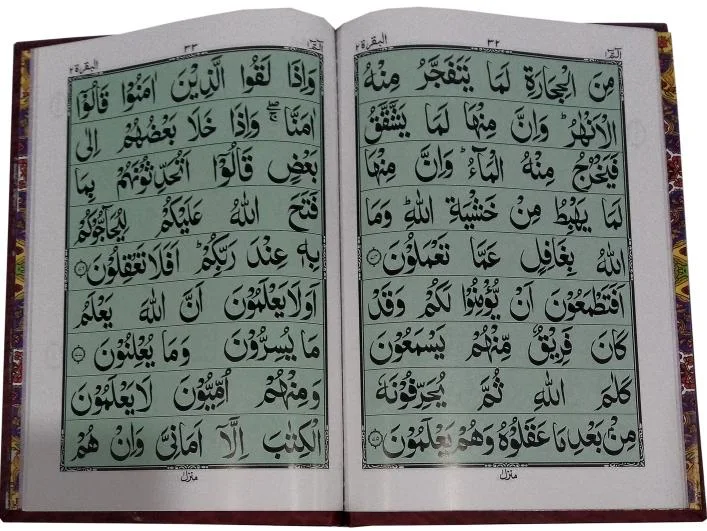 الٓمٓ ١
٣٢
البقرة ٢
مِنَ الْحِجَارَةِ لَمَا يَتَفَجَّرُ مِنْهُ
الْاَنْهٰرُ ؕ وَاِنَّ مِنْهَا لَمَا يَشَّقَّقُ
فَيَخْرُجُ مِنْهُ الْمَآءُ ؕ وَاِنَّ مِنْهَا
لَمَا يَهْبِطُ مِنْ خَشْيَةِ اللّٰهِ ؕ وَمَا
اللّٰهُ بِغَافِلٍ عَمَّا تَعْمَلُوْنَ ۝٧٤
اَفَتَطْمَعُوْنَ اَنْ يُّؤْمِنُوْا لَكُمْ وَقَدْ
كَانَ فَرِيْقٌ مِّنْهُمْ يَسْمَعُوْنَ
كَلٰمَ اللّٰهِ ثُمَّ يُحَرِّفُوْنَهٗ
مِنْۢ بَعْدِ مَا عَقَلُوْهُ وَهُمْ يَعْلَمُوْنَ ۝٧٥
منزل
الٓمٓ ١
٣٣
البقرة ٢
وَاِذَا لَقُوا الَّذِيْنَ اٰمَنُوْا قَالُوْٓا
اٰمَنَّا ۖۚ وَاِذَا خَلَا بَعْضُهُمْ اِلٰى
بَعْضٍ قَالُوْٓا اَتُحَدِّثُوْنَهُمْ بِمَا
فَتَحَ اللّٰهُ عَلَيْكُمْ لِيُحَآجُّوْكُمْ
بِهٖ عِنْدَ رَبِّكُمْ ؕ اَفَلَا تَعْقِلُوْنَ ۝٧٦
اَوَلَا يَعْلَمُوْنَ اَنَّ اللّٰهَ يَعْلَمُ
مَا يُسِرُّوْنَ وَمَا يُعْلِنُوْنَ ۝٧٧
وَمِنْهُمْ اُمِّيُّوْنَ لَا يَعْلَمُوْنَ
الْكِتٰبَ اِلَّآ اَمَانِىَّ وَاِنْ هُمْ
منزل